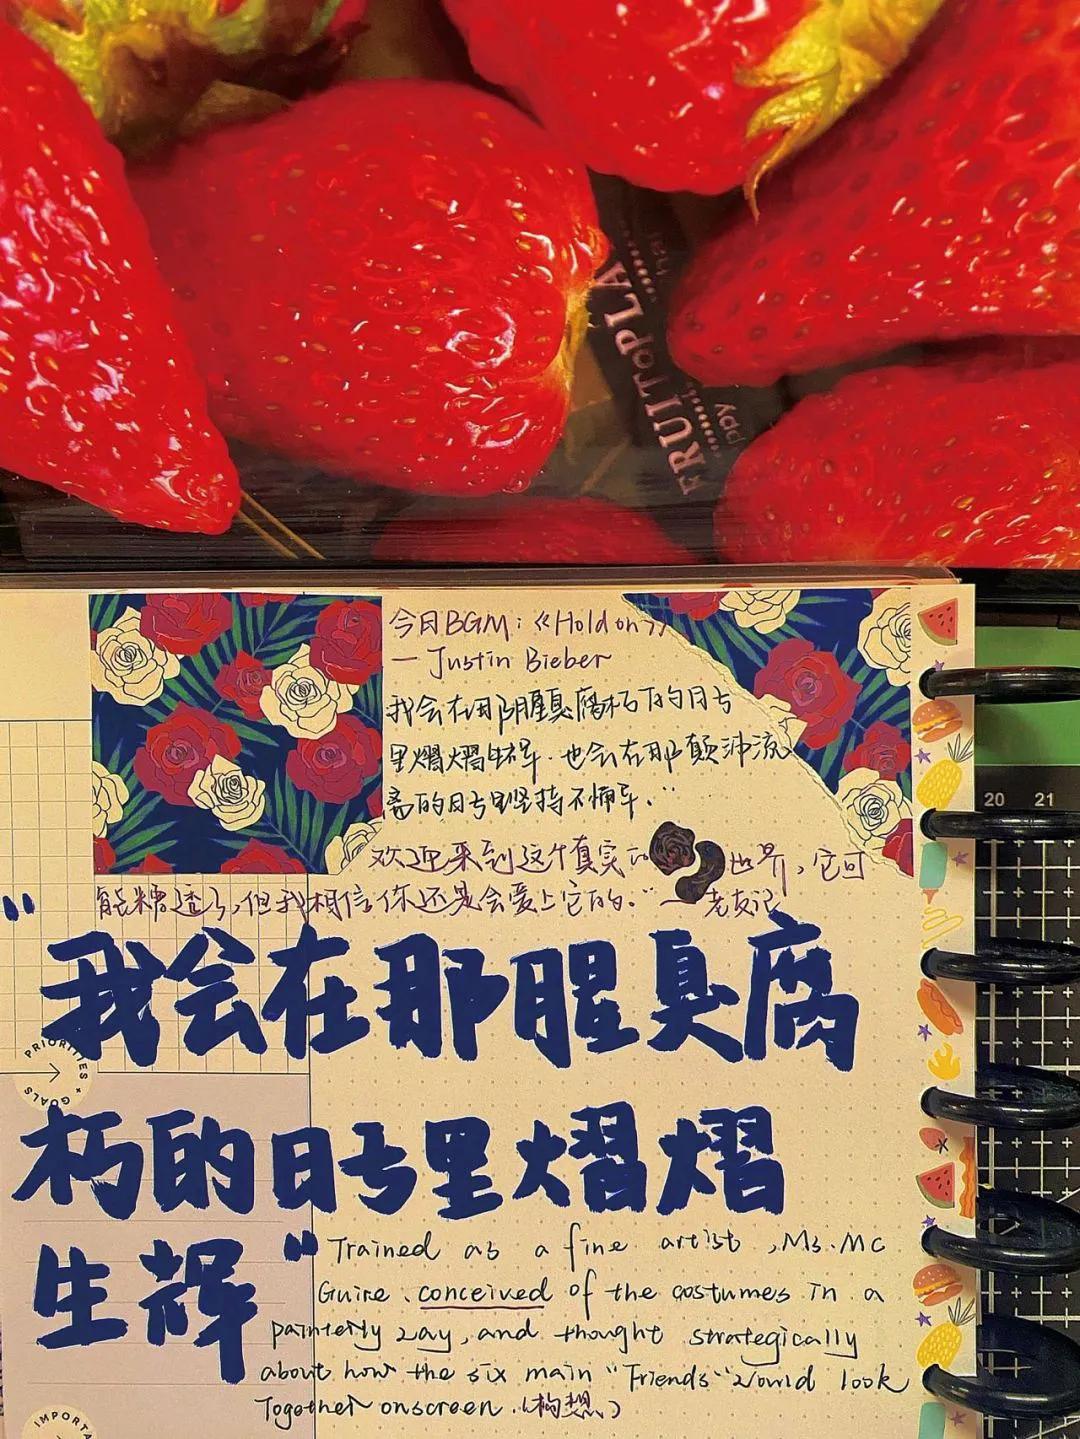 FRUITOPLA
今日BGM：《Hold on》
— Justin Bieber
我会在那腥臭腐朽的日子
里熠熠生辉．也会在那颠沛流
离的日子里坚持不懈．"
欢迎来到这个真实 世界，它可
能糟透了，但我相信你还是会爱上它的。" — 老友记
"我会在那腥臭腐
朽的日子里熠熠
生辉"
PRIORITIES + GOALS
Trained as a fine artist, Ms. Mc
Guire conceived of the costumes in a
painterly way, and thought strategically
about how the six main "Friends" would look
Together onscreen. (构想)
IMPORTA
20 21